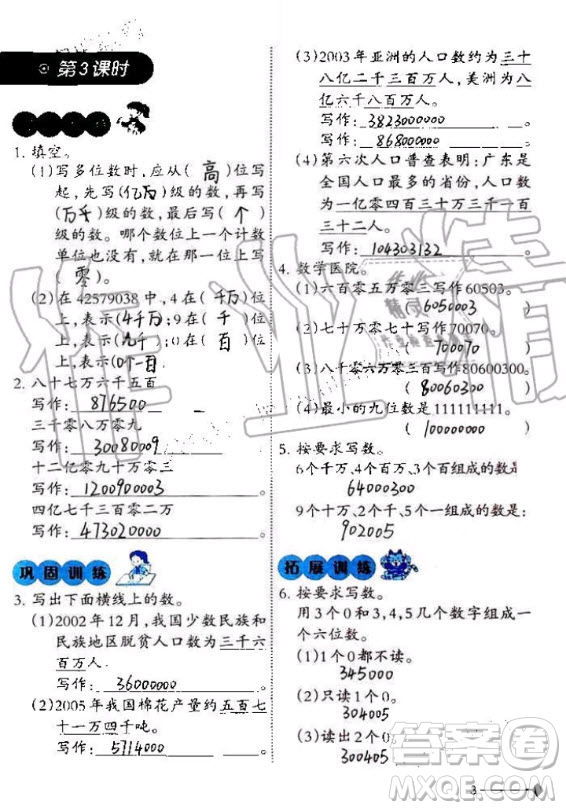 第3课时
1. 填空。
(1)写多位数时,应从(高)位写
起,先写(亿万)级的数,再写
(万千)级的数,最后写(个)
级的数。哪个数位上一个计数
单位也没有,就在那一位上写
(零)。
(2)在42579038中,4在(千万)位
上,表示(4千万);9在(千)位
上,表示(9千);0在(百)位
上,表示(0个一百)。
2. 八十七万六千五百
写作: 876500 。
三千零八万零九
写作: 30080009 。
十二亿零九十万零三
写作: 1200900003 。
四亿七千三百零二万
写作: 473020000 。
巩固训练
3. 写出下面横线上的数。
(1)2002年12月,我国少数民族和
民族地区脱贫人口数为三千六
百万人.
写作: 36000000 。
(2)2005年我国棉花产量约五百七
十一万四千吨。
写作: 5714000 。
(3)2003年亚洲的人口数约为三十
八亿二千三百万人,美洲为八
亿六千八百万人。
写作: 3823000000 。
写作: 868000000 。
(4)第六次人口普查表明:广东是
全国人口最多的省份,人口数
为一亿零四百三十万三千一百
三十二人。
写作: 104303132 。
4. 数学医院。
(1)六百零五万零三写作60503。
( 6050003 )
(2)七十万零七十写作70070。
( 700070 )
(3)八千零六万零三百写作80600300。
( 80060300 )
(4)最小的九位数是111111111。
( 100000000 )
5. 按要求写数。
6个千万、4个百万、3个百组成的数是
64000300
9个十万、2个千、5个一组成的数是:
902005 。
拓展训练
6. 按要求写数。
用3个0和3,4,5几个数字组成一
个六位数。
(1)1个0都不读。
345000
(2)只读1个0。
304005
(3)读出2个0.
300405
3
答案圈
MXQE.COM
作业精灵